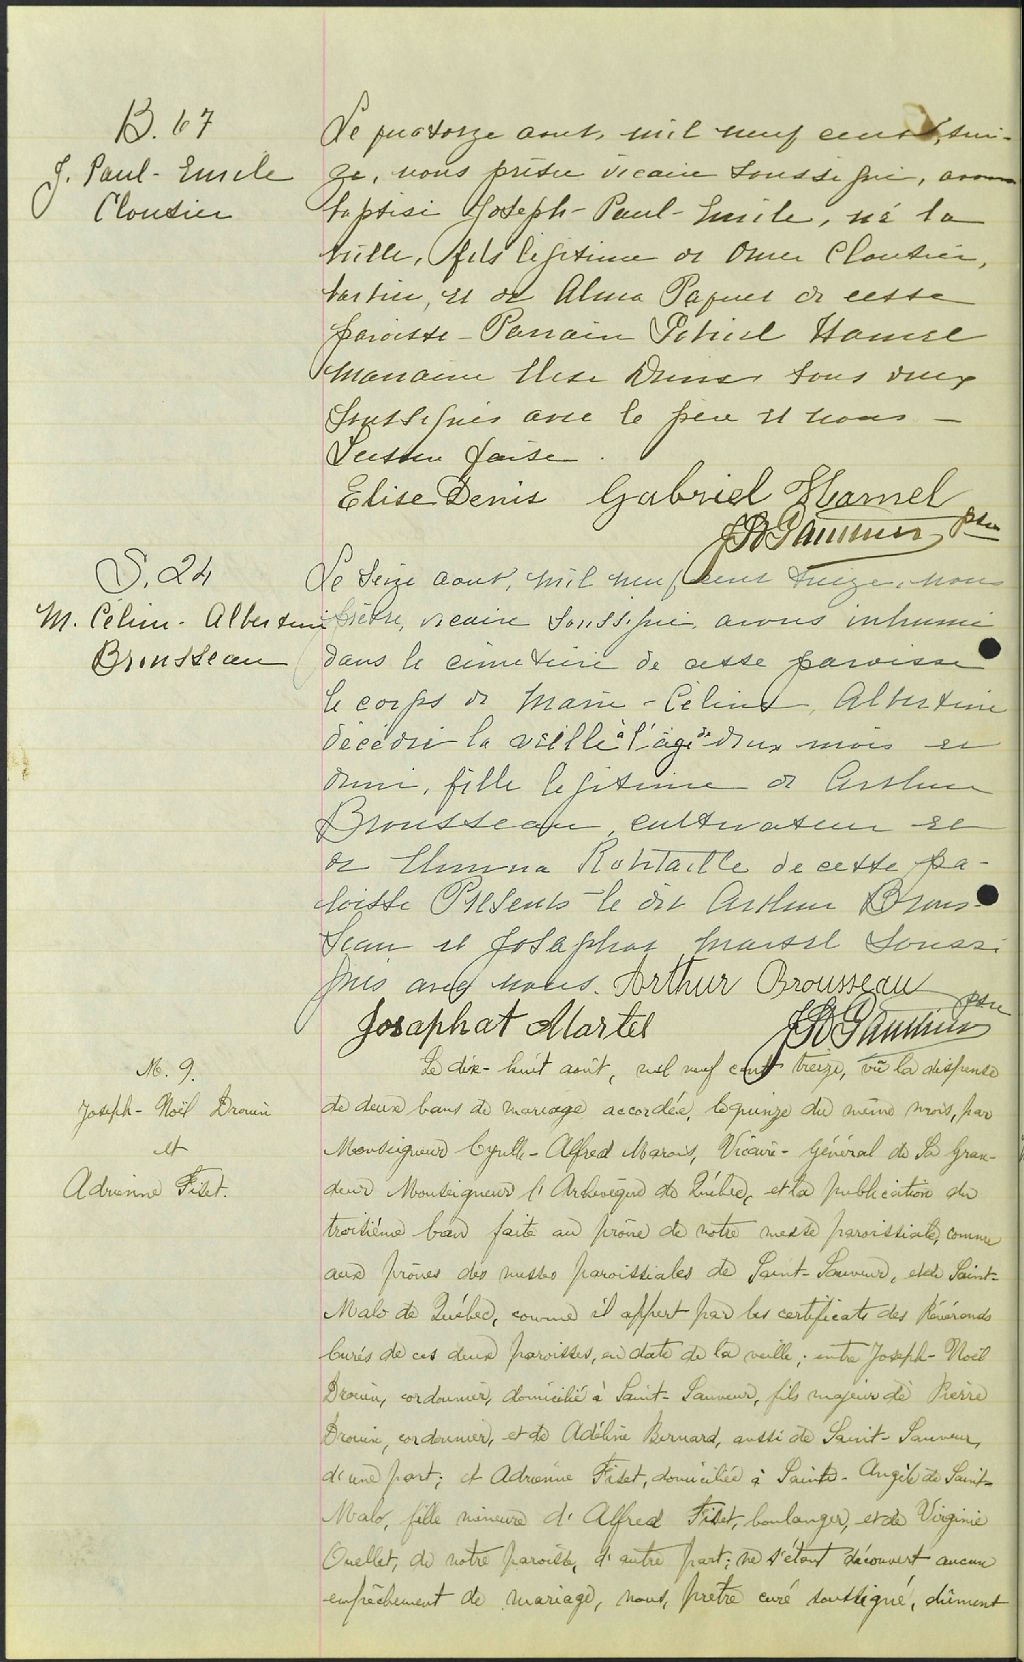 B. 67
J. Paul-Emile
Cloutier
Le quatorze aout, mil neuf cent, trei-
ze, nous prêtre vicaire soussigné, avons
baptisé Joseph-Paul-Emile, né la
veille, fils légitime de Omer Cloutier,
et de Alma Paquet de cette
paroisse - Parrain Hamel
Marraine Elise Denis tous deux
soussignés avec le père et nous -
Lecture faite.
Elise Denis Gabriel Hamel
ptre
S. 24
M. Célina-Albertine
Brousseau
Le seize aout, mil neuf cent treize, nous
prêtre, vicaire soussigné, avons inhumé
dans le cimetière de cette paroisse
le corps de Marie-Célina, Albertine
décédée la veille à l'âge de deux mois et
demi, fille légitime de Arthur
Brousseau, cultivateur et
de Emma Robitaille de cette pa-
roisse Présents - le dit Arthur Brous-
seau et Josaphat Martel soussi
gnés avec nous. Arthur Brousseau
ptre
Josaphat Martel
M. 9.
Joseph-Noël Drouin
et
Adrienne Fiset.
Le dix-huit août, mil neuf cent treize, vû la dispense
de deux bans de mariage accordée, le quinze du même mois, par
Monseigneur Cyrille-Alfred Marois, Vicaire-Général de Sa Gran-
deur Monseigneur l'Archevêque de Québec, et la publication du
troisième ban faite au prône de notre messe paroissiale, comme
aux prônes des messes paroissiales de Saint-Sauveur, et de Saint-
Malo de Québec, comme il appert par les certificats des Révérends
Curés de ces deux paroisses, en date de la veille; entre Joseph-Noël
Drouin, cordonnier, domicilié à Saint-Sauveur, fils majeur de Pierre
Drouin, cordonnier, et de Adéline Bernard, aussi de Saint-Sauveur,
d'une part; et Adrienne Fiset, domiciliée à Sainte-Angèle de Saint-
Malo, fille mineure d'Alfred Fiset, boulanger, et de Virginie
Ouellet, de notre paroisse, d'autre part; ne s'étant découvert aucun
empêchement de mariage, nous, prêtre curé soussigné, dûment